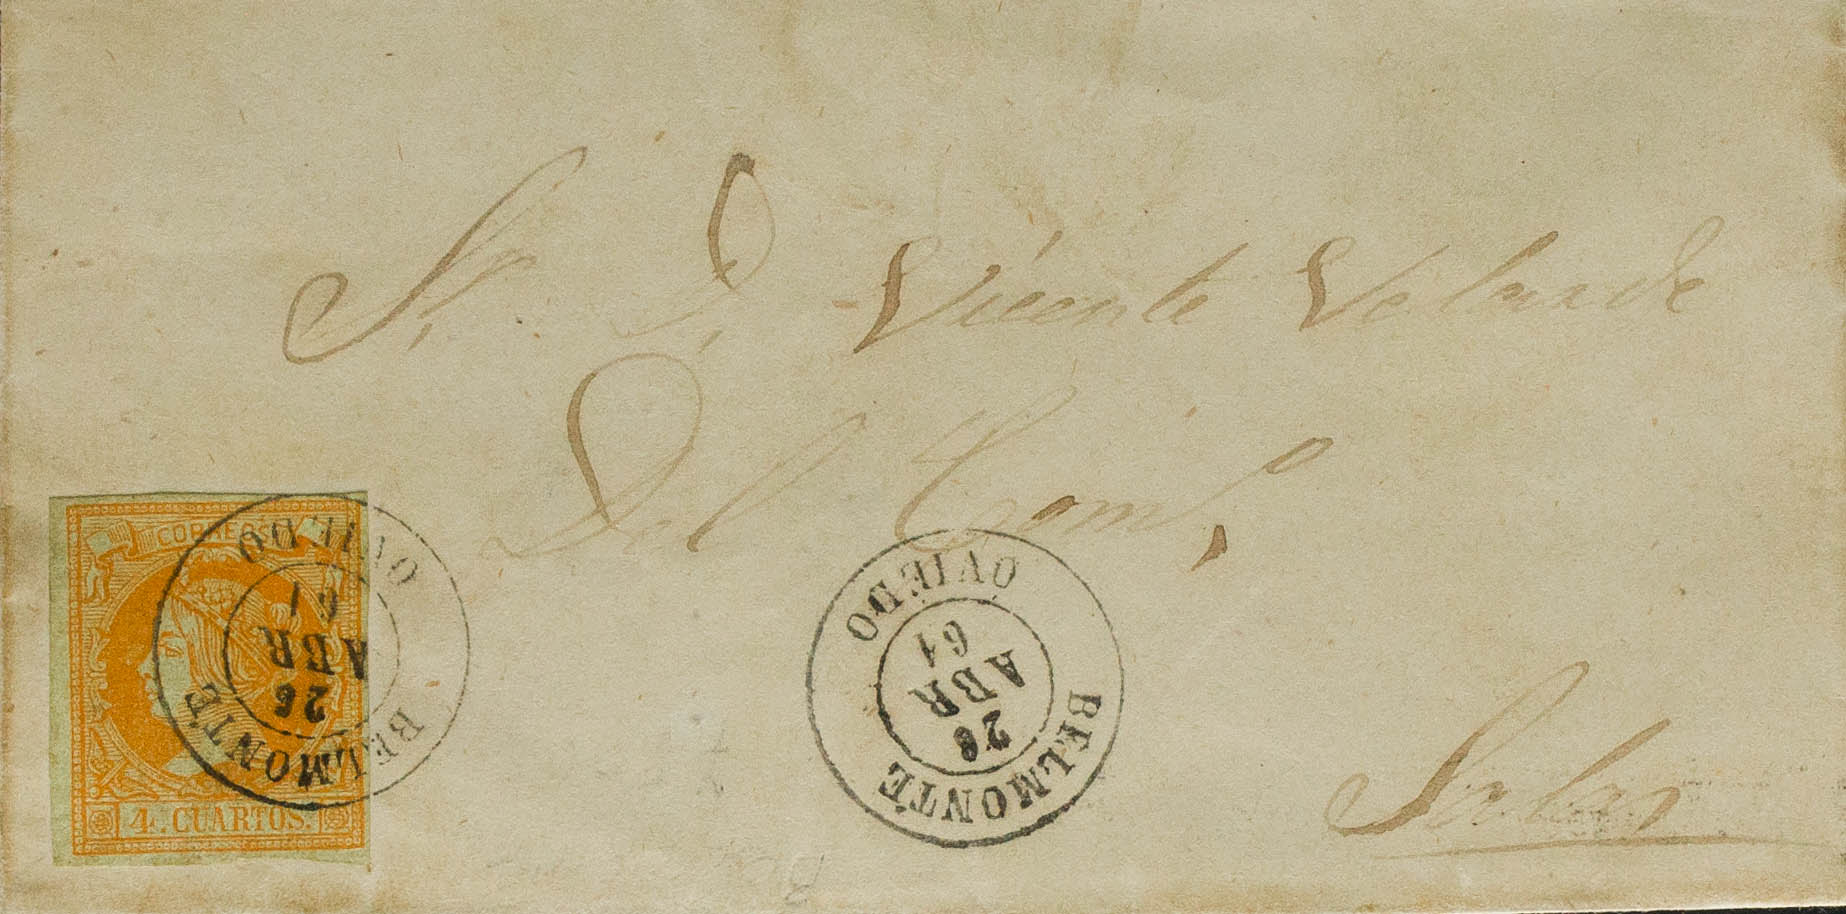 Sr. D. Vicente Velarde
Del Comº
Salas
CORREOS
4 CUARTOS.
BELMONTE
26
ABR
61
OVIEDO
BELMONTE
26
ABR
61
OVIEDO